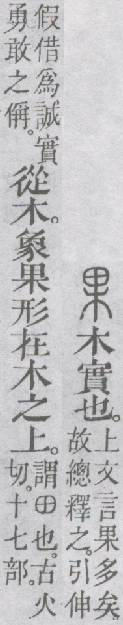 果木實也。
上文言果多矣。
故總釋之。引伸
假借爲誠實
勇敢之偁。
從木。象果形在木之上。
謂田也。古火
切。十七部。